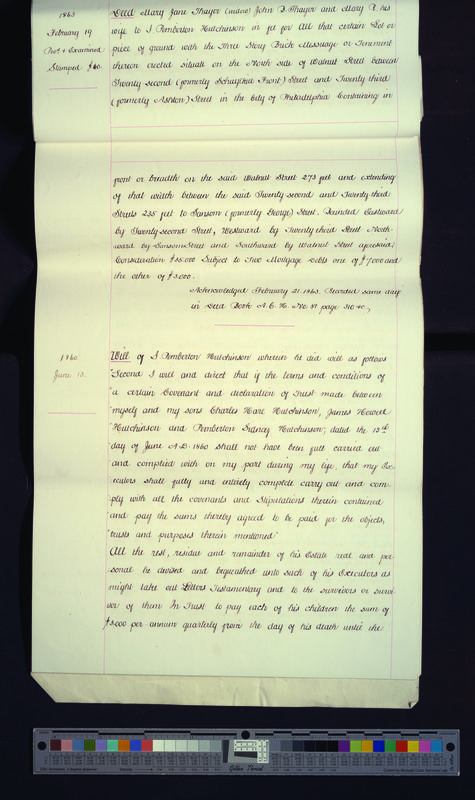 1863
February 19
Not & Examined
Stamped $60.
Deed Mary Jane Thayer (widow) John B. Thayer and Mary B. his
wife to I Pemberton Hutchinson in fee for All that certain Lot or
piece of ground with the Three Story Brick Messuage or Tenement
thereon erected situate on the North side of Walnut Street between
Twenty second (formerly Schuylkill Front) Street and Twenty third
(formerly Ashton) Street in the City of Philadelphia Containing in
front or breadth on the said Walnut Street 275 feet and extending
of that width between the said Twenty-second and Twenty-third
Streets 235 feet to Sansom (formerly George) Street. Bounded Eastward
by Twenty-second Street, Westward by Twenty-third Street North-
ward by Sansom Street and Southward by Walnut Street aforesaid;
Consideration $ Subject to Two Mortgage Debts one of $7000 and
the other of $5000.
Acknowledged February 21. 1863. Recorded same day
in Deed Book A. C. H. No. 87 page 310 &c,
1860
June 13.
Will of I Pemberton Hutchinson wherein he did will as follows
"Second I will and direct that if the terms and conditions of
"a certain Covenant and declaration of Trust made between
"myself and my sons Charles Hare Hutchinson, James Howell
"Hutchinson and Pemberton Sidney Hutchinson, dated the 13th
"day of June A.D. 1860 shall not have been full carried out
"and complied with on my part during my life, that my Ex-
"ecutors shall fully and entirely complete carry out and com-
"ply with all the covenants and stipulations therein contained
"and pay the sums thereby agreed to be paid for the objects,
"trusts and purposes therein mentioned"
All the rest, residue and remainder of his Estate real and per-
sonal he devised and bequeathed unto such of his Executors as
might take out Letters Testamentary and to the survivors or survi-
vor of them In Trust to pay each of his children the sum of
$3000 per annum quarterly from the day of his death until the